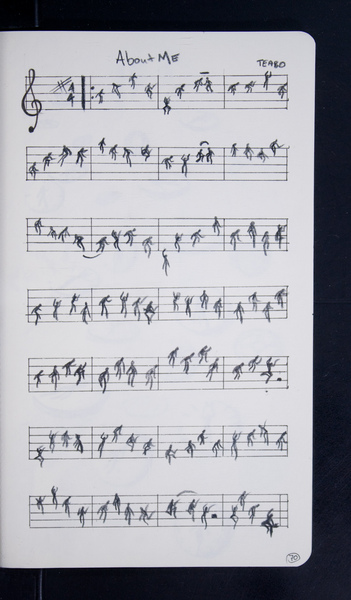 About ME
TEABO
4
4
70